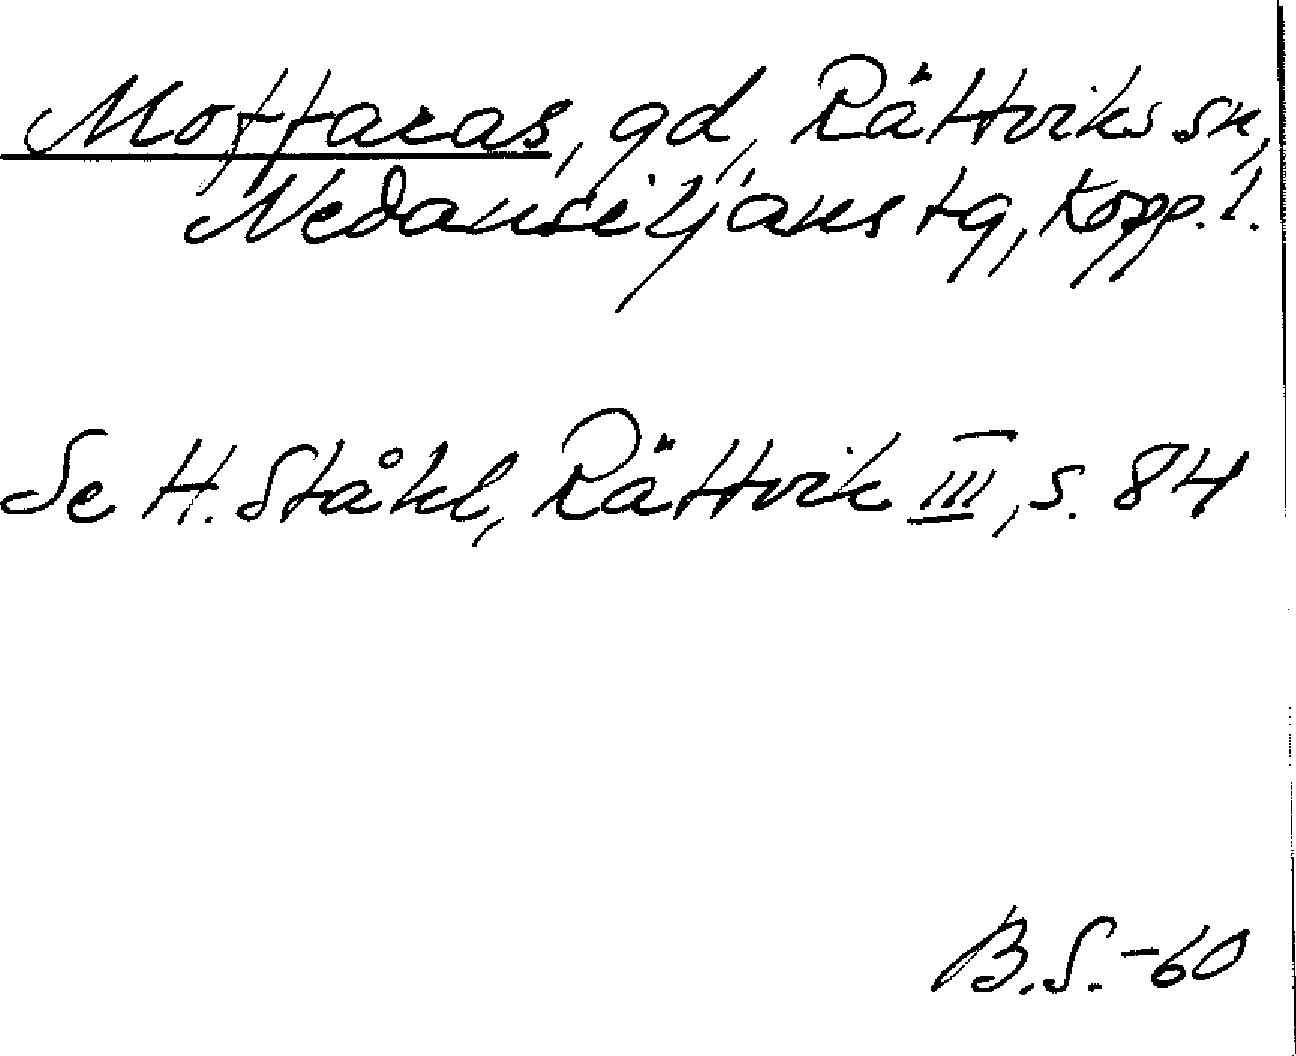 Moffaras, gd, Rättviks sn,
Nedansiljans tg, Kopp. l.
Se H. Ståhl, Rättvik III, s. 84
B.S. -60